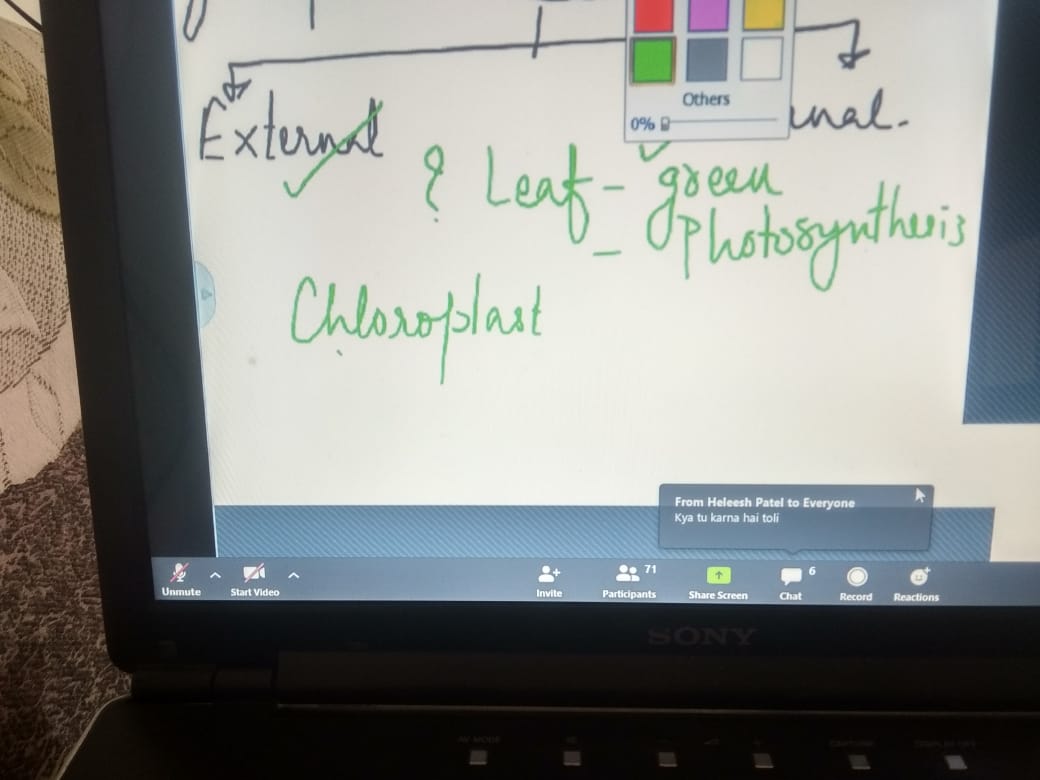 Others
0%
External
? Leaf - green
- Photosynthesis
Chloroplast
From Heleesh Patel to Everyone
Kya tu karna hai toli
Unmute
Start Video
Invite
71
Participants
Share Screen
6
Chat
Record
Reactions
SONY
AV MODE